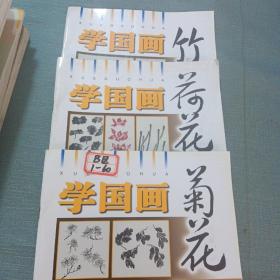 学国画
竹
XUEGUOHUA
学国画
荷花
BB
1-60
学国画
菊花